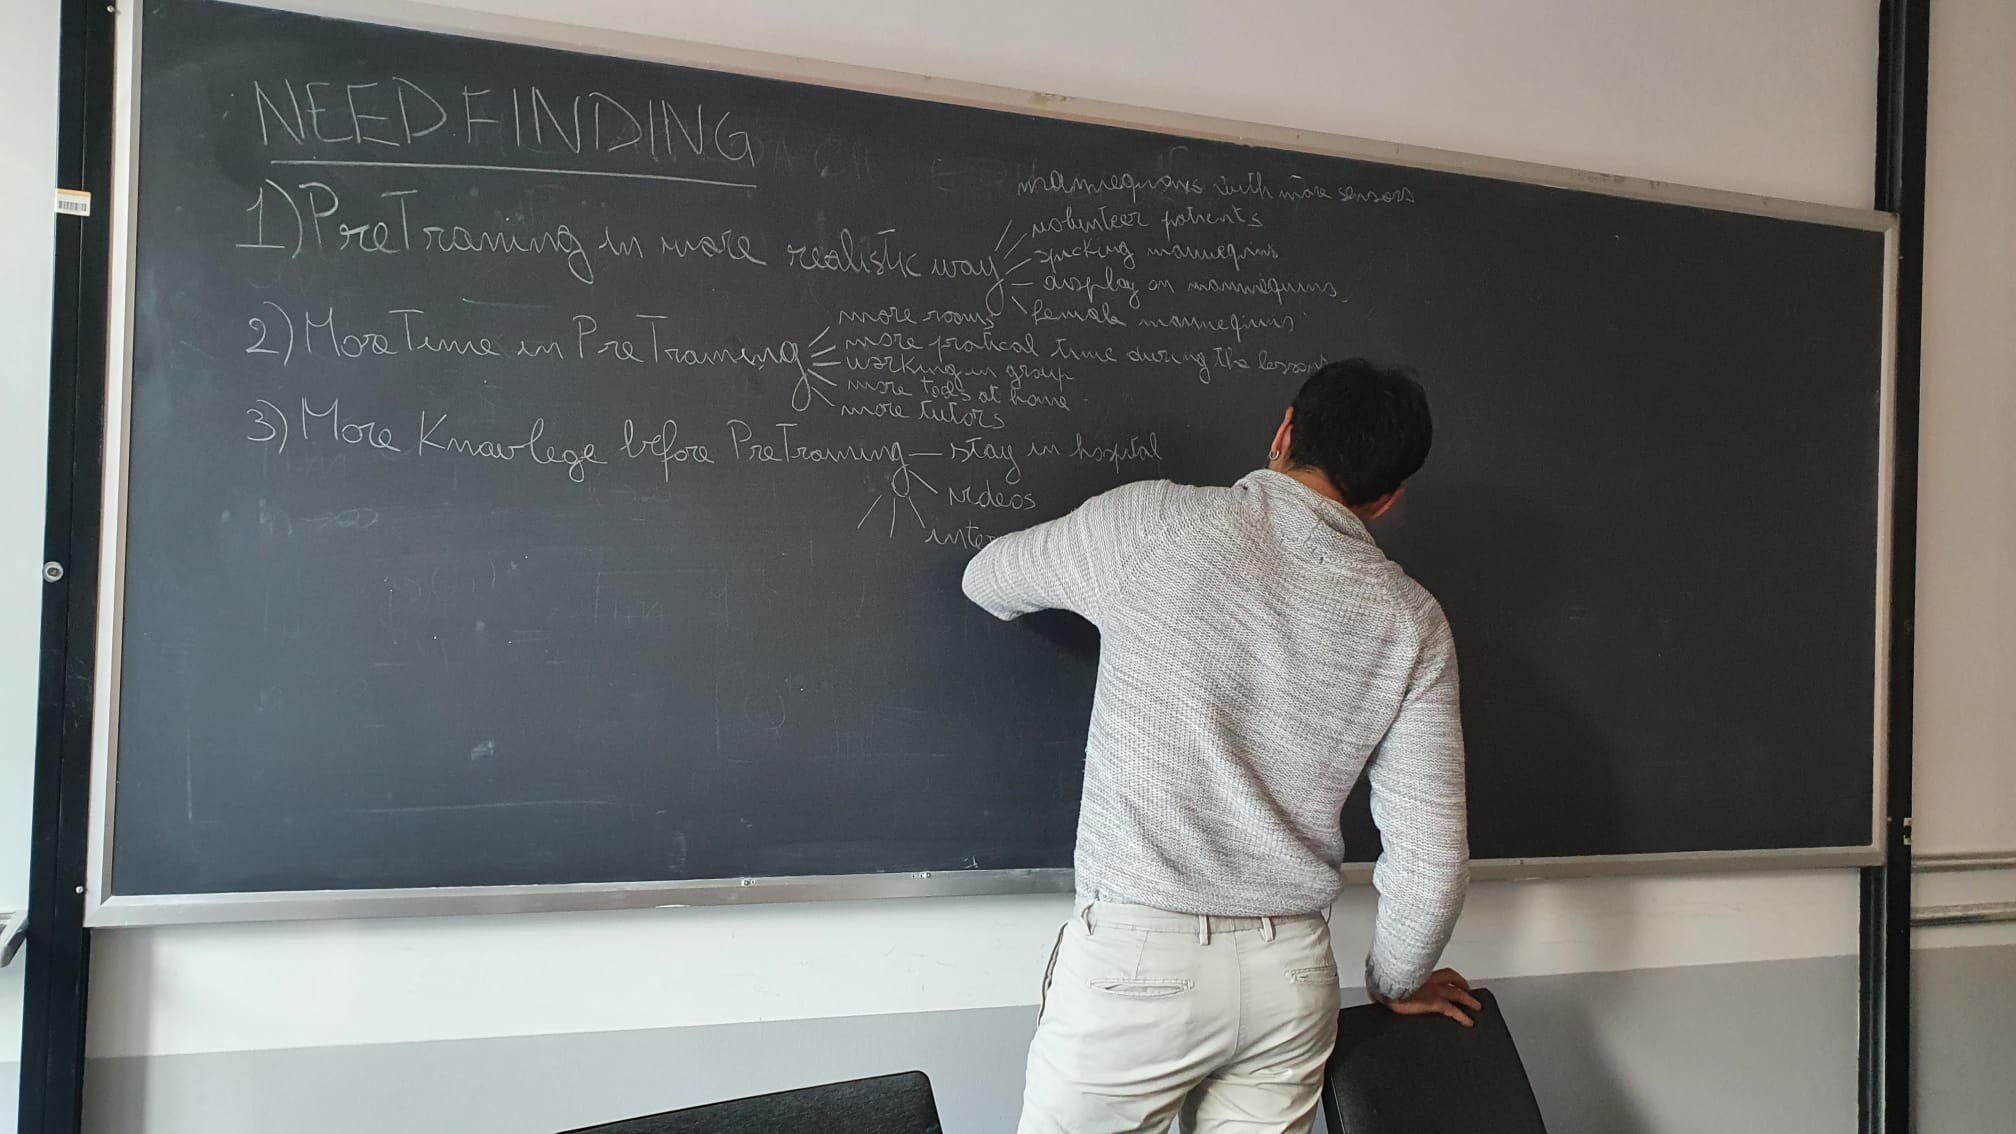 NEEDFINDING
1) PreTraining in more realistic way
mannequins with more sensors
volunteer patients
speking mannequins
display on mannequins
female mannequins
2) More Time in PreTraining
more rooms
more pratical time during the lesson
working in group
more tools at home
more tutors
3) More Knowlege before PreTraining
stay in hospital
videos
inte